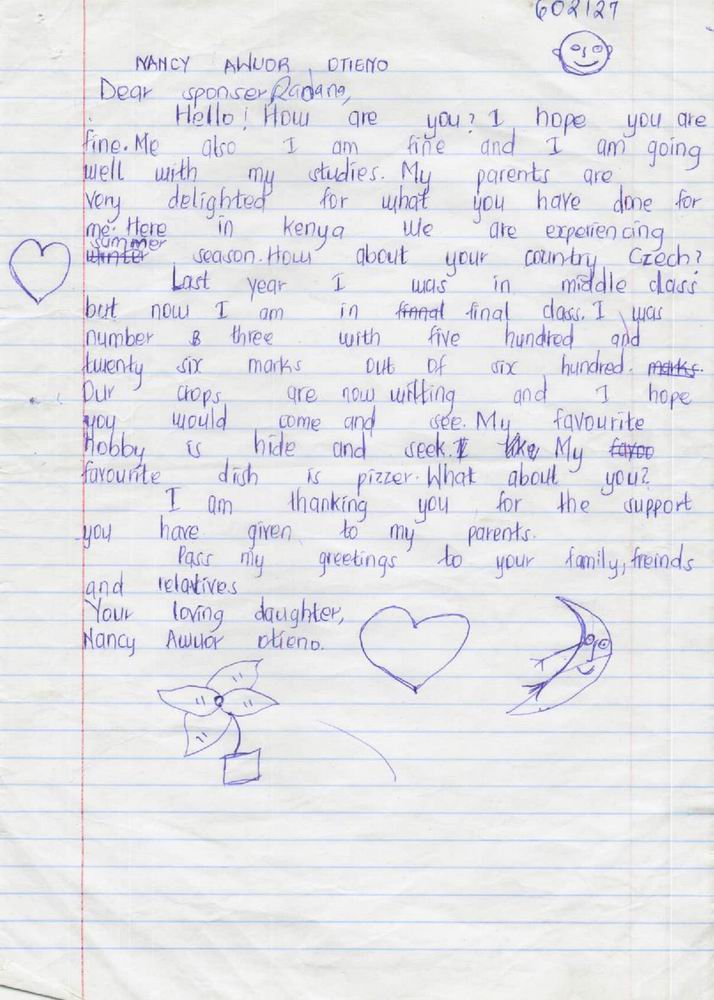 602127
NANCY AWUOR OTIENO
Dear sponser Radana,
Hello! How are you? I hope you are
fine. Me also I am fine and I am going
well with my studies. My parents are
very delighted for what you have done for
me. Here in kenya we are experiencing
summer
winter season. How about your country Czech?
Last year I was in middle class
but now I am in finnal final class. I was
number 3 three with five hundred and
twenty six marks out of six hundred. marks.
Our crops are now wilting and I hope
you would come and see. My favourite
hobby is hide and seek. I like My favoo
favourite dish is pizzer. What about you?
I am thanking you for the support
you have given to my parents.
Pass my greetings to your family, freinds
and relatives
Your loving daughter,
Nancy Awuor otieno.